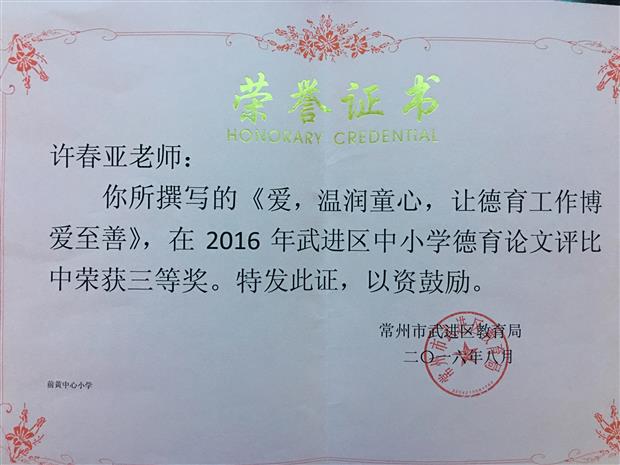 荣誉证书
HONORARY CREDENTIAL
许春亚老师：
你所撰写的《爱，温润童心，让德育工作博
爱至善》，在 2016 年武进区中小学德育论文评比
中荣获三等奖。特发此证，以资鼓励。
常州市武进区教育局
二〇一六年八月
常州市武进区教育局
前黄中心小学